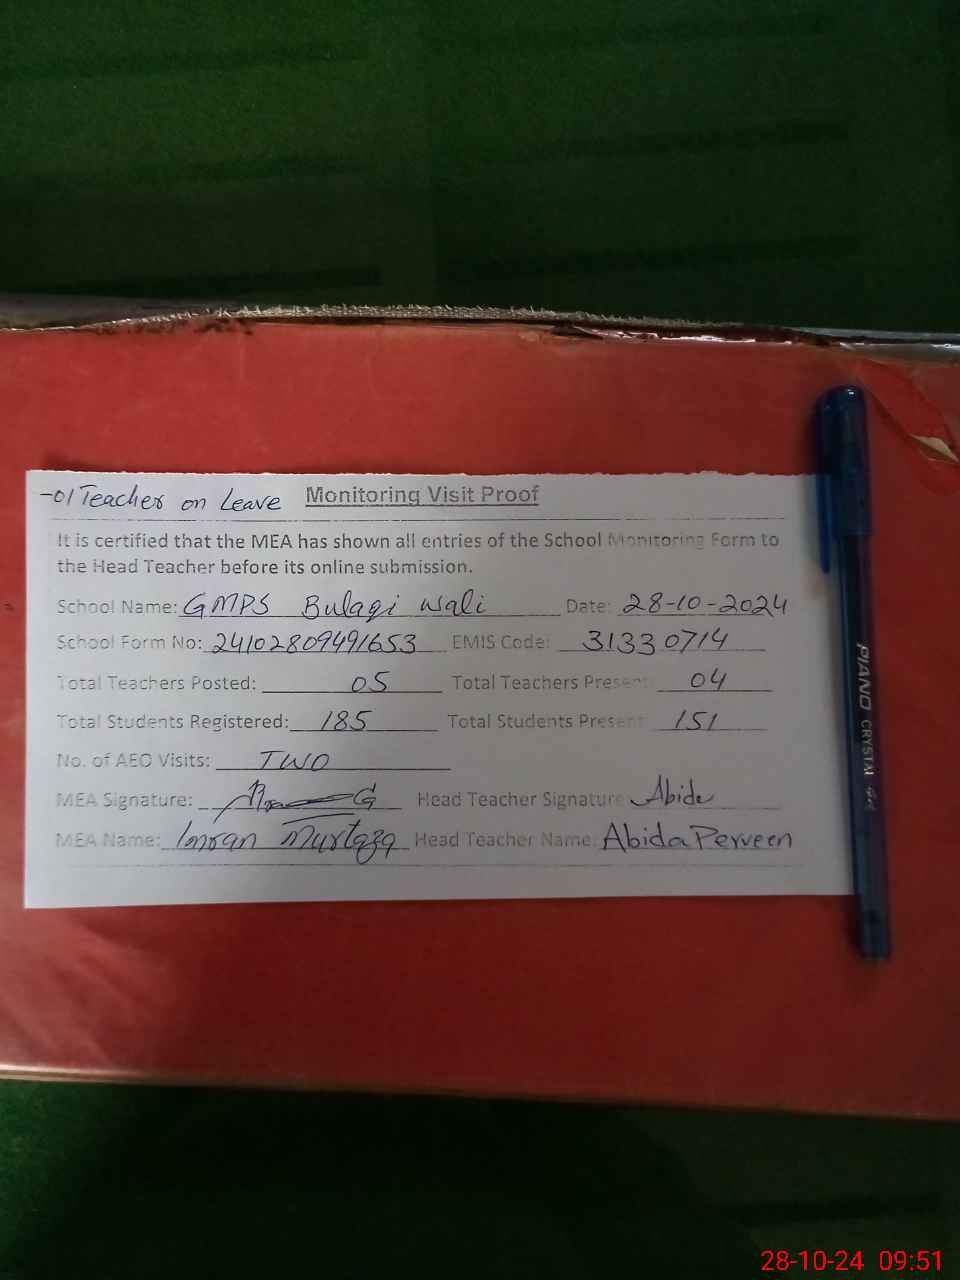 -01 Teacher on Leave Monitoring Visit Proof
It is certified that the MEA has shown all entries of the School Monitoring Form to
the Head Teacher before its online submission.
School Name: GMPS Bulaqi Wali Date: 28-10-2024
School Form No: 24102809491653 EMIS Code: 31330714
Total Teachers Posted: 05 Total Teachers Present: 04
Total Students Registered: 185 Total Students Present: 151
No. of AEO Visits: TWO
MEA Signature: Head Teacher Signature: Abida
MEA Name: Imran Murtaza Head Teacher Name: Abida Perveen
PIANO CRYSTAL
28-10-24 09:51